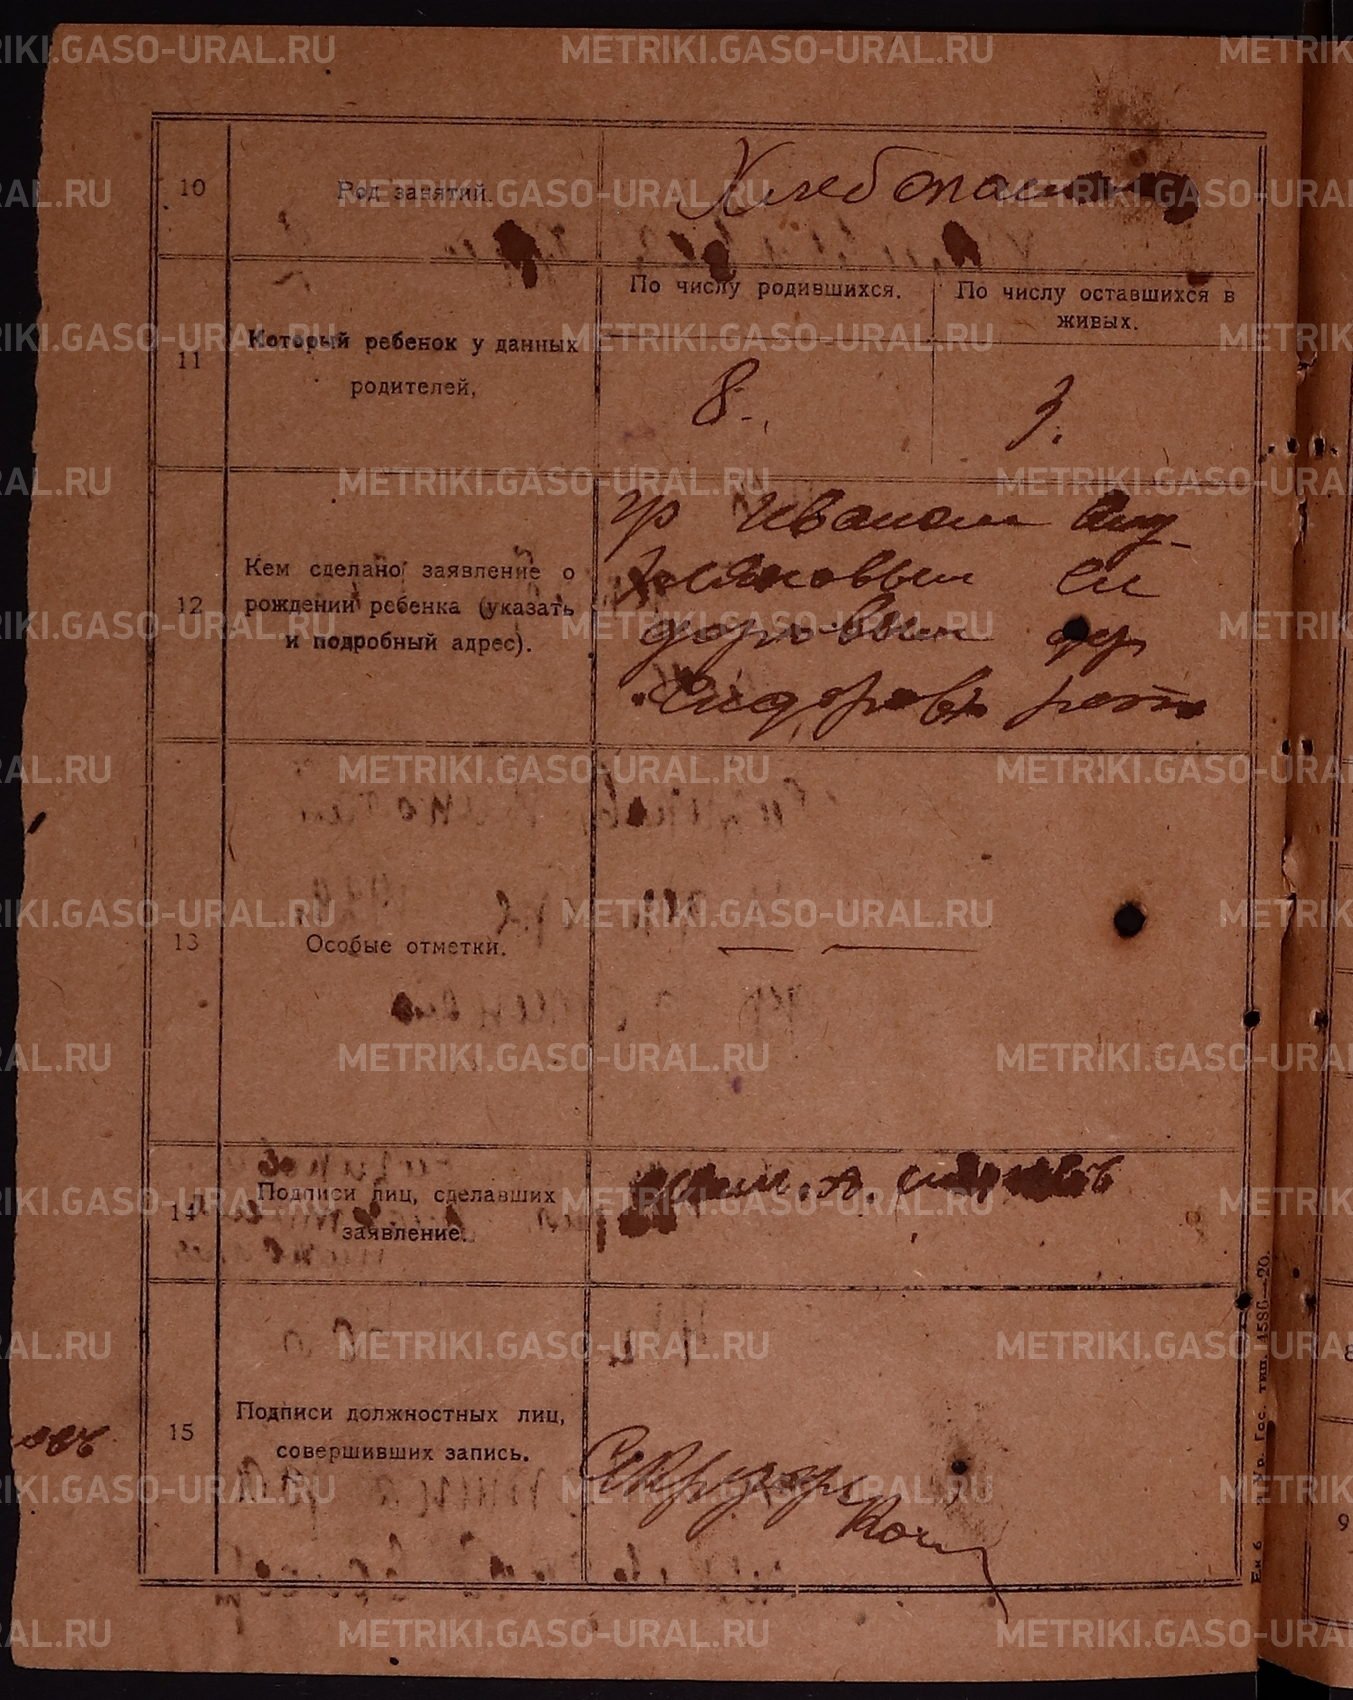 METRIKI.GASO-URAL.RU
10
Род занятий.
Хлебопашец
11
Который ребенок у данных
родителей,
По числу родившихся.
По числу оставшихся в
живых.
8.
3.
12
Кем сделано заявление о
рождении ребенка (указать
и подробный адрес).
гр Иваном
Си
доровым
Сидорова
13
Особые отметки.
14
Подписи лиц, сделавших
заявление.
15
Подписи должностных лиц,
совершивших запись.
Секретарь
Ур. Гос. тип. 1586—20.
8
9